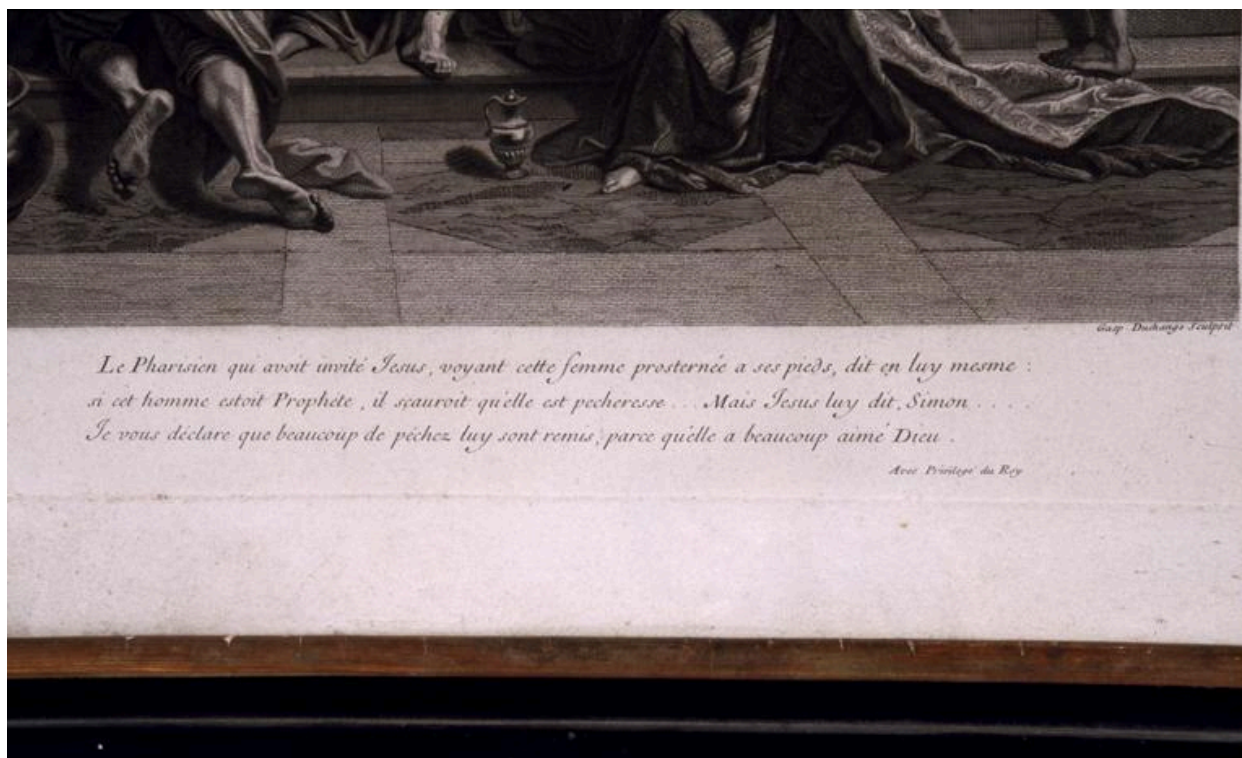 Gasp. Duchange Sculpsit
Le Pharisien qui avoit invité Jesus, voyant cette femme prosternée a ses pieds, dit en luy mesme :
si cet homme estoit Prophéte, il sçauroit qu'elle est pecheresse ... Mais Jesus luy dit, Simon .....
Je vous déclare que beaucoup de péchez luy sont remis, parce qu'elle a beaucoup aimé Dieu .
Avec Privilege du Roy